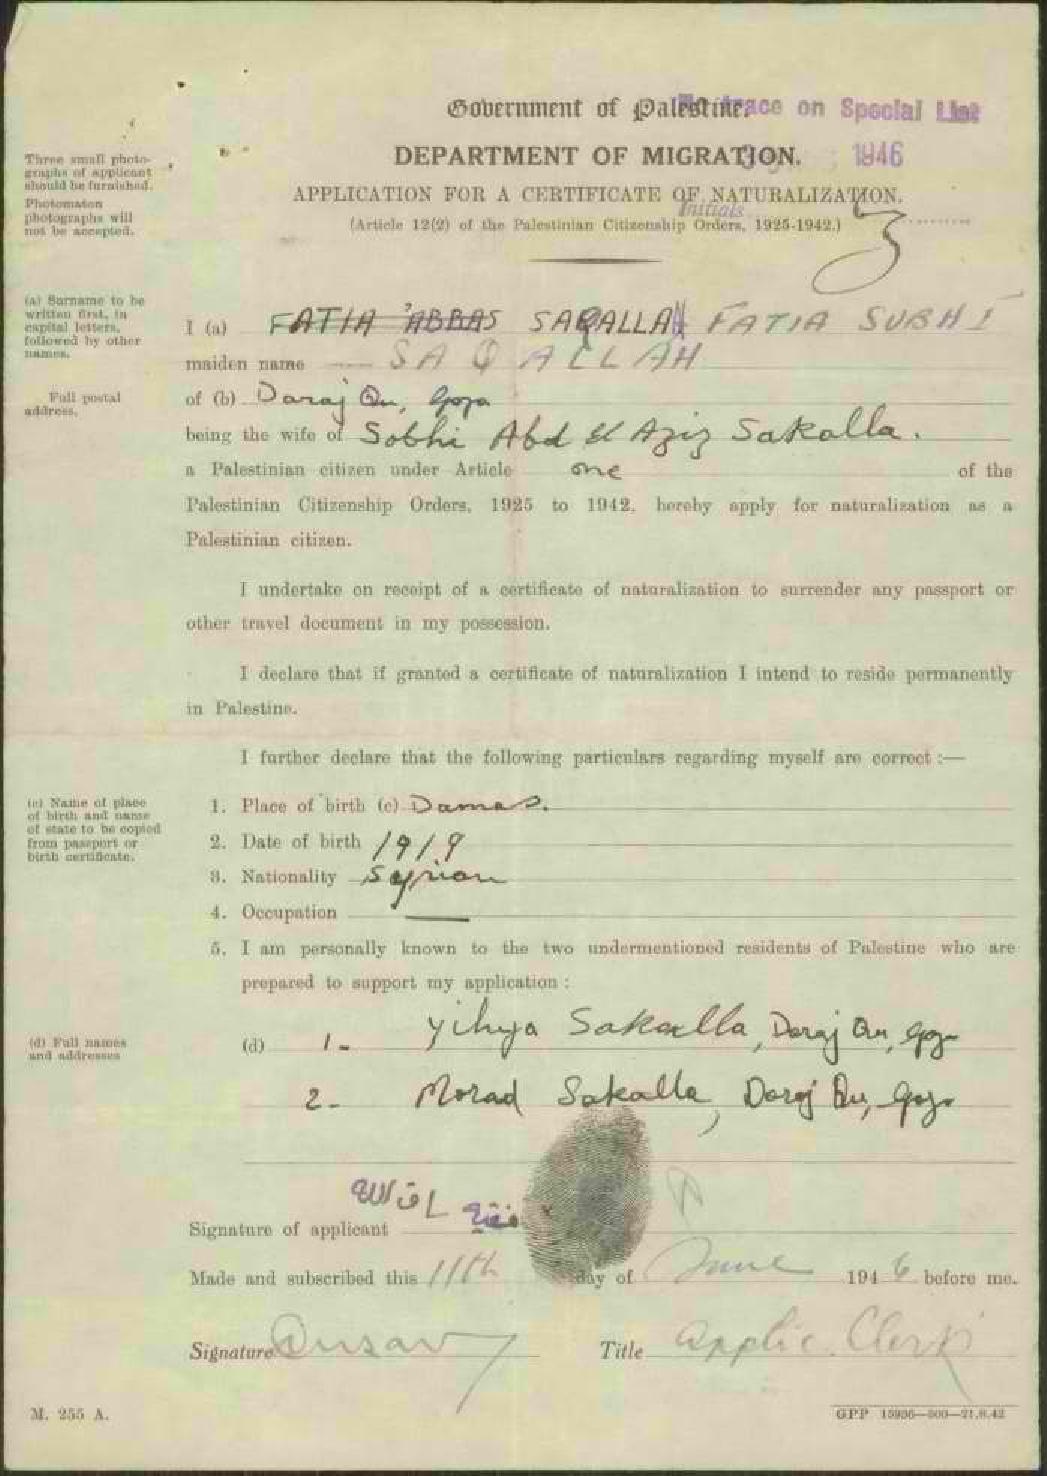 Government of Palestine.
trace on Special List
DEPARTMENT OF MIGRATION.
1946
APPLICATION FOR A CERTIFICATE OF NATURALIZATION.
Initials
(Article 12(2) of the Palestinian Citizenship Orders, 1925-1942.)
Three small photo-
graphs of applicant
should be furnished.
Photomaton
photographs will
not be accepted.
(a) Surname to be
written first, in
capital letters,
followed by other
names.
I (a) FATIA 'ABBAS SAQALLAH FATIA SUBHI
maiden name — SAQALLAH
Full postal
address.
of (b) Daraj Qu, Gaza
being the wife of Sobhi Abd El Aziz Sakalla.
a Palestinian citizen under Article one of the
Palestinian Citizenship Orders, 1925 to 1942, hereby apply for naturalization as a
Palestinian citizen.
I undertake on receipt of a certificate of naturalization to surrender any passport or
other travel document in my possession.
I declare that if granted a certificate of naturalization I intend to reside permanently
in Palestine.
I further declare that the following particulars regarding myself are correct :—
(c) Name of place
of birth and name
of state to be copied
from passport or
birth certificate.
1. Place of birth (c) Damas.
2. Date of birth 1919
3. Nationality Syrian
4. Occupation —
5. I am personally known to the two undermentioned residents of Palestine who are
prepared to support my application :
(d) Full names
and addresses
(d) 1- Yihya Sakalla, Daraj Qu, Gaza
2- Morad Sakalla, Daraj Qu, Gaza
ساق الله
Signature of applicant
Made and subscribed this 11th day of June 1946 before me.
Signature Title Applic. Clerk
M. 255 A.
GPP 15936—500—21.8.42